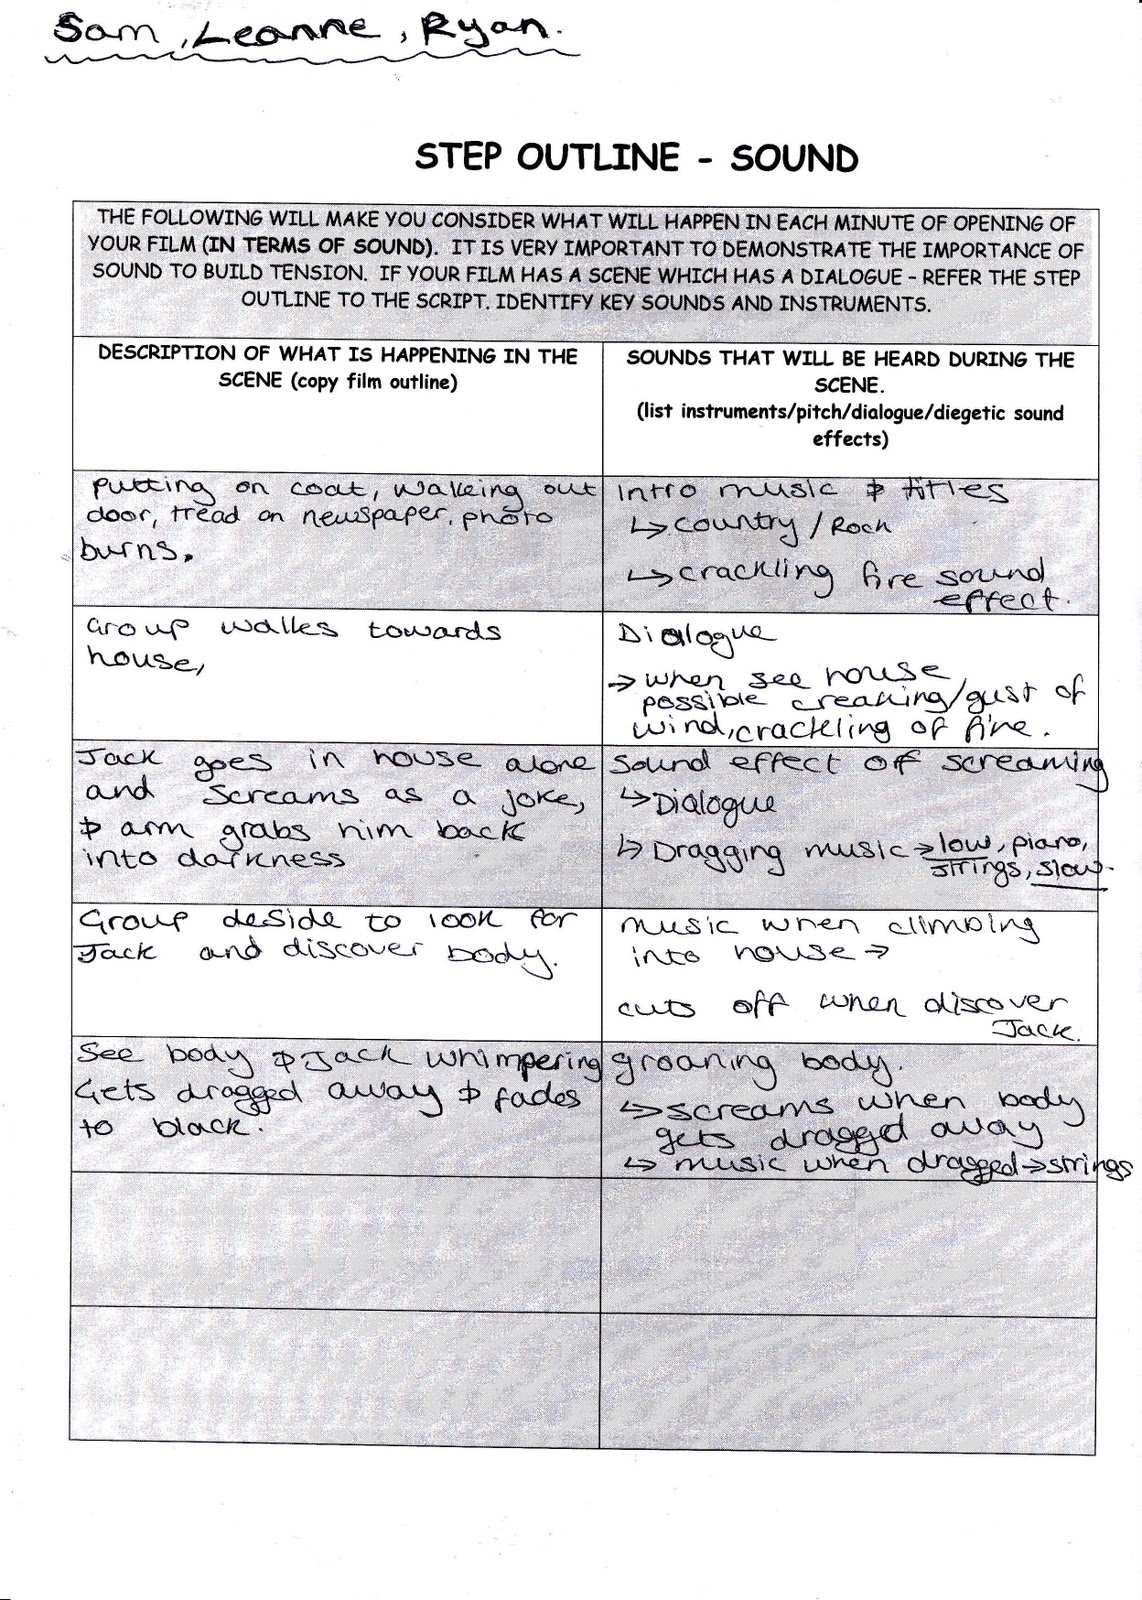 Sam, Leanne, Ryan.
STEP OUTLINE - SOUND
THE FOLLOWING WILL MAKE YOU CONSIDER WHAT WILL HAPPEN IN EACH MINUTE OF OPENING OF
YOUR FILM (IN TERMS OF SOUND). IT IS VERY IMPORTANT TO DEMONSTRATE THE IMPORTANCE OF
SOUND TO BUILD TENSION. IF YOUR FILM HAS A SCENE WHICH HAS A DIALOGUE - REFER THE STEP
OUTLINE TO THE SCRIPT. IDENTIFY KEY SOUNDS AND INSTRUMENTS.
DESCRIPTION OF WHAT IS HAPPENING IN THE
SCENE (copy film outline)
SOUNDS THAT WILL BE HEARD DURING THE
SCENE.
(list instruments/pitch/dialogue/diegetic sound
effects)
Putting on coat, walking out
door, tread on newspaper, photo
burns.
Intro music & titles
↳ country / Rock
↳ crackling fire sound
effect.
Group walks towards
house,
Dialogue
→ when see house,
possible creaking/gust of
wind, crackling of fire.
Jack goes in house alone
and screams as a joke,
& arm grabs him back
into darkness
Sound effect of screaming
↳ Dialogue
↳ Dragging music → low, piano,
strings, slow.
Group deside to look for
Jack and discover body.
music when climbing
into house →
cuts off when discover
Jack.
See body & Jack whimpering
Gets dragged away & fades
to black.
groaning body.
↳ screams when body
gets dragged away
↳ music when dragged → strings